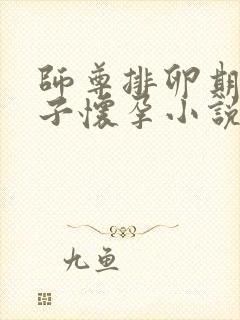 師尊排卵期
子懷孕小說
九鱼